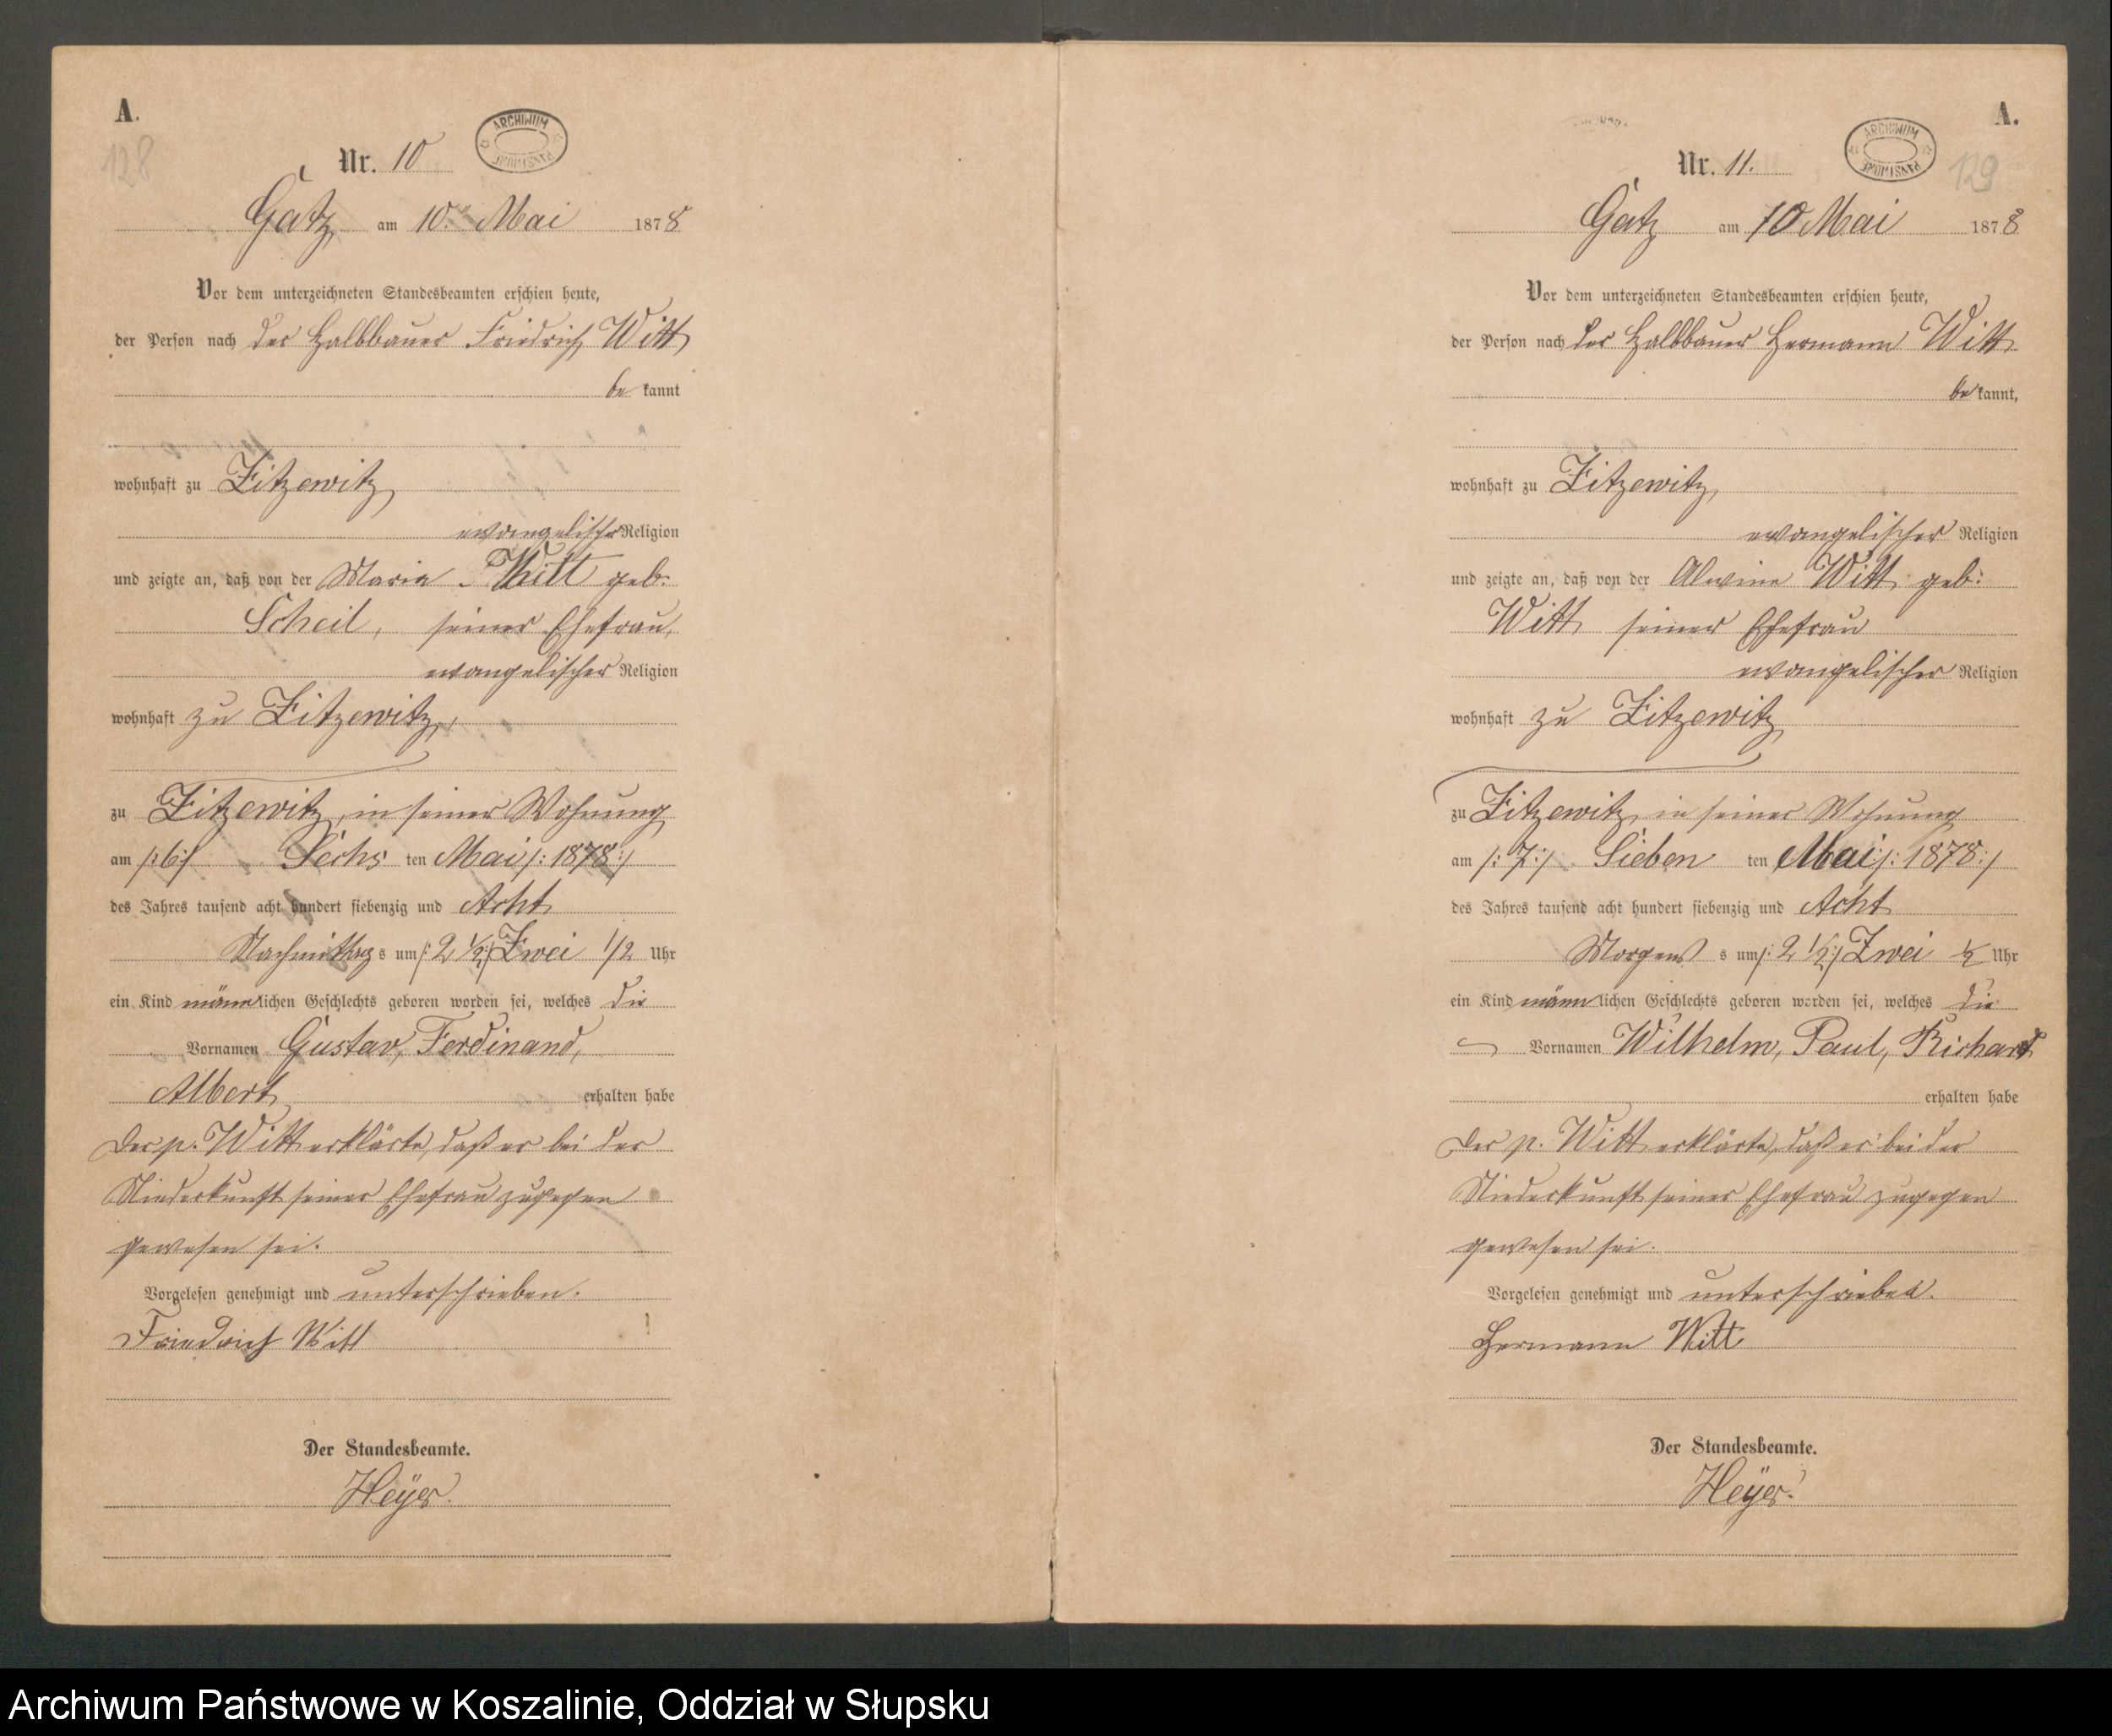 A.
128
Nr. 10
ARCHIWUM PAŃSTWOWE
Gatz am 10. Mai 1878
Vor dem unterzeichneten Standesbeamten erschien heute,
der Person nach der Halbbauer Friedrich Witt
be kannt
wohnhaft zu Zitzewitz,
evangelischer Religion
und zeigte an, daß von der Maria Witt geb.
Scheil, seiner Ehefrau,
evangelischer Religion
wohnhaft zu Zitzewitz,
zu Zitzewitz, in seiner Wohnung
am /:6:/ Sechs ten Mai /: 1878 :/
des Jahres tausend acht hundert siebenzig und Acht
Nachmittag s um /: 2 1/2 :/ Zwei 1/2 Uhr
ein Kind männlichen Geschlechts geboren worden sei, welches die
Vornamen Gustav, Ferdinand,
Albert erhalten habe
Der p. Witt erklärte, daß er bei der
Niederkunft seiner Ehefrau zugegen
gewesen sei.
Vorgelesen genehmigt und unterschrieben.
Friedrich Witt
Der Standesbeamte.
Heÿer.
A.
129
Nr. 11.
ARCHIWUM PAŃSTWOWE
Gatz am 10 Mai 1878
Vor dem unterzeichneten Standesbeamten erschien heute,
der Person nach der Halbbauer Hermann Witt
be kannt,
wohnhaft zu Zitzewitz,
evangelischer Religion
und zeigte an, daß von der Alwine Witt geb:
Witt seiner Ehefrau
evangelischer Religion
wohnhaft zu Zitzewitz
zu Zitzewitz, in seiner Wohnung
am /: 7 :/ Sieben ten Mai /: 1878 :/
des Jahres tausend acht hundert siebenzig und Acht
Morgens s um /: 2 1/2 :/ Zwei 1/2 Uhr
ein Kind männlichen Geschlechts geboren worden sei, welches die
Vornamen Wilhelm, Paul, Richard
erhalten habe
Der p. Witt erklärte, daß er bei der
Niederkunft seiner Ehefrau zugegen
gewesen sei.
Vorgelesen genehmigt und unterschrieben.
Hermann Witt
Der Standesbeamte.
Heÿer.
Archiwum Państwowe w Koszalinie, Oddział w Słupsku